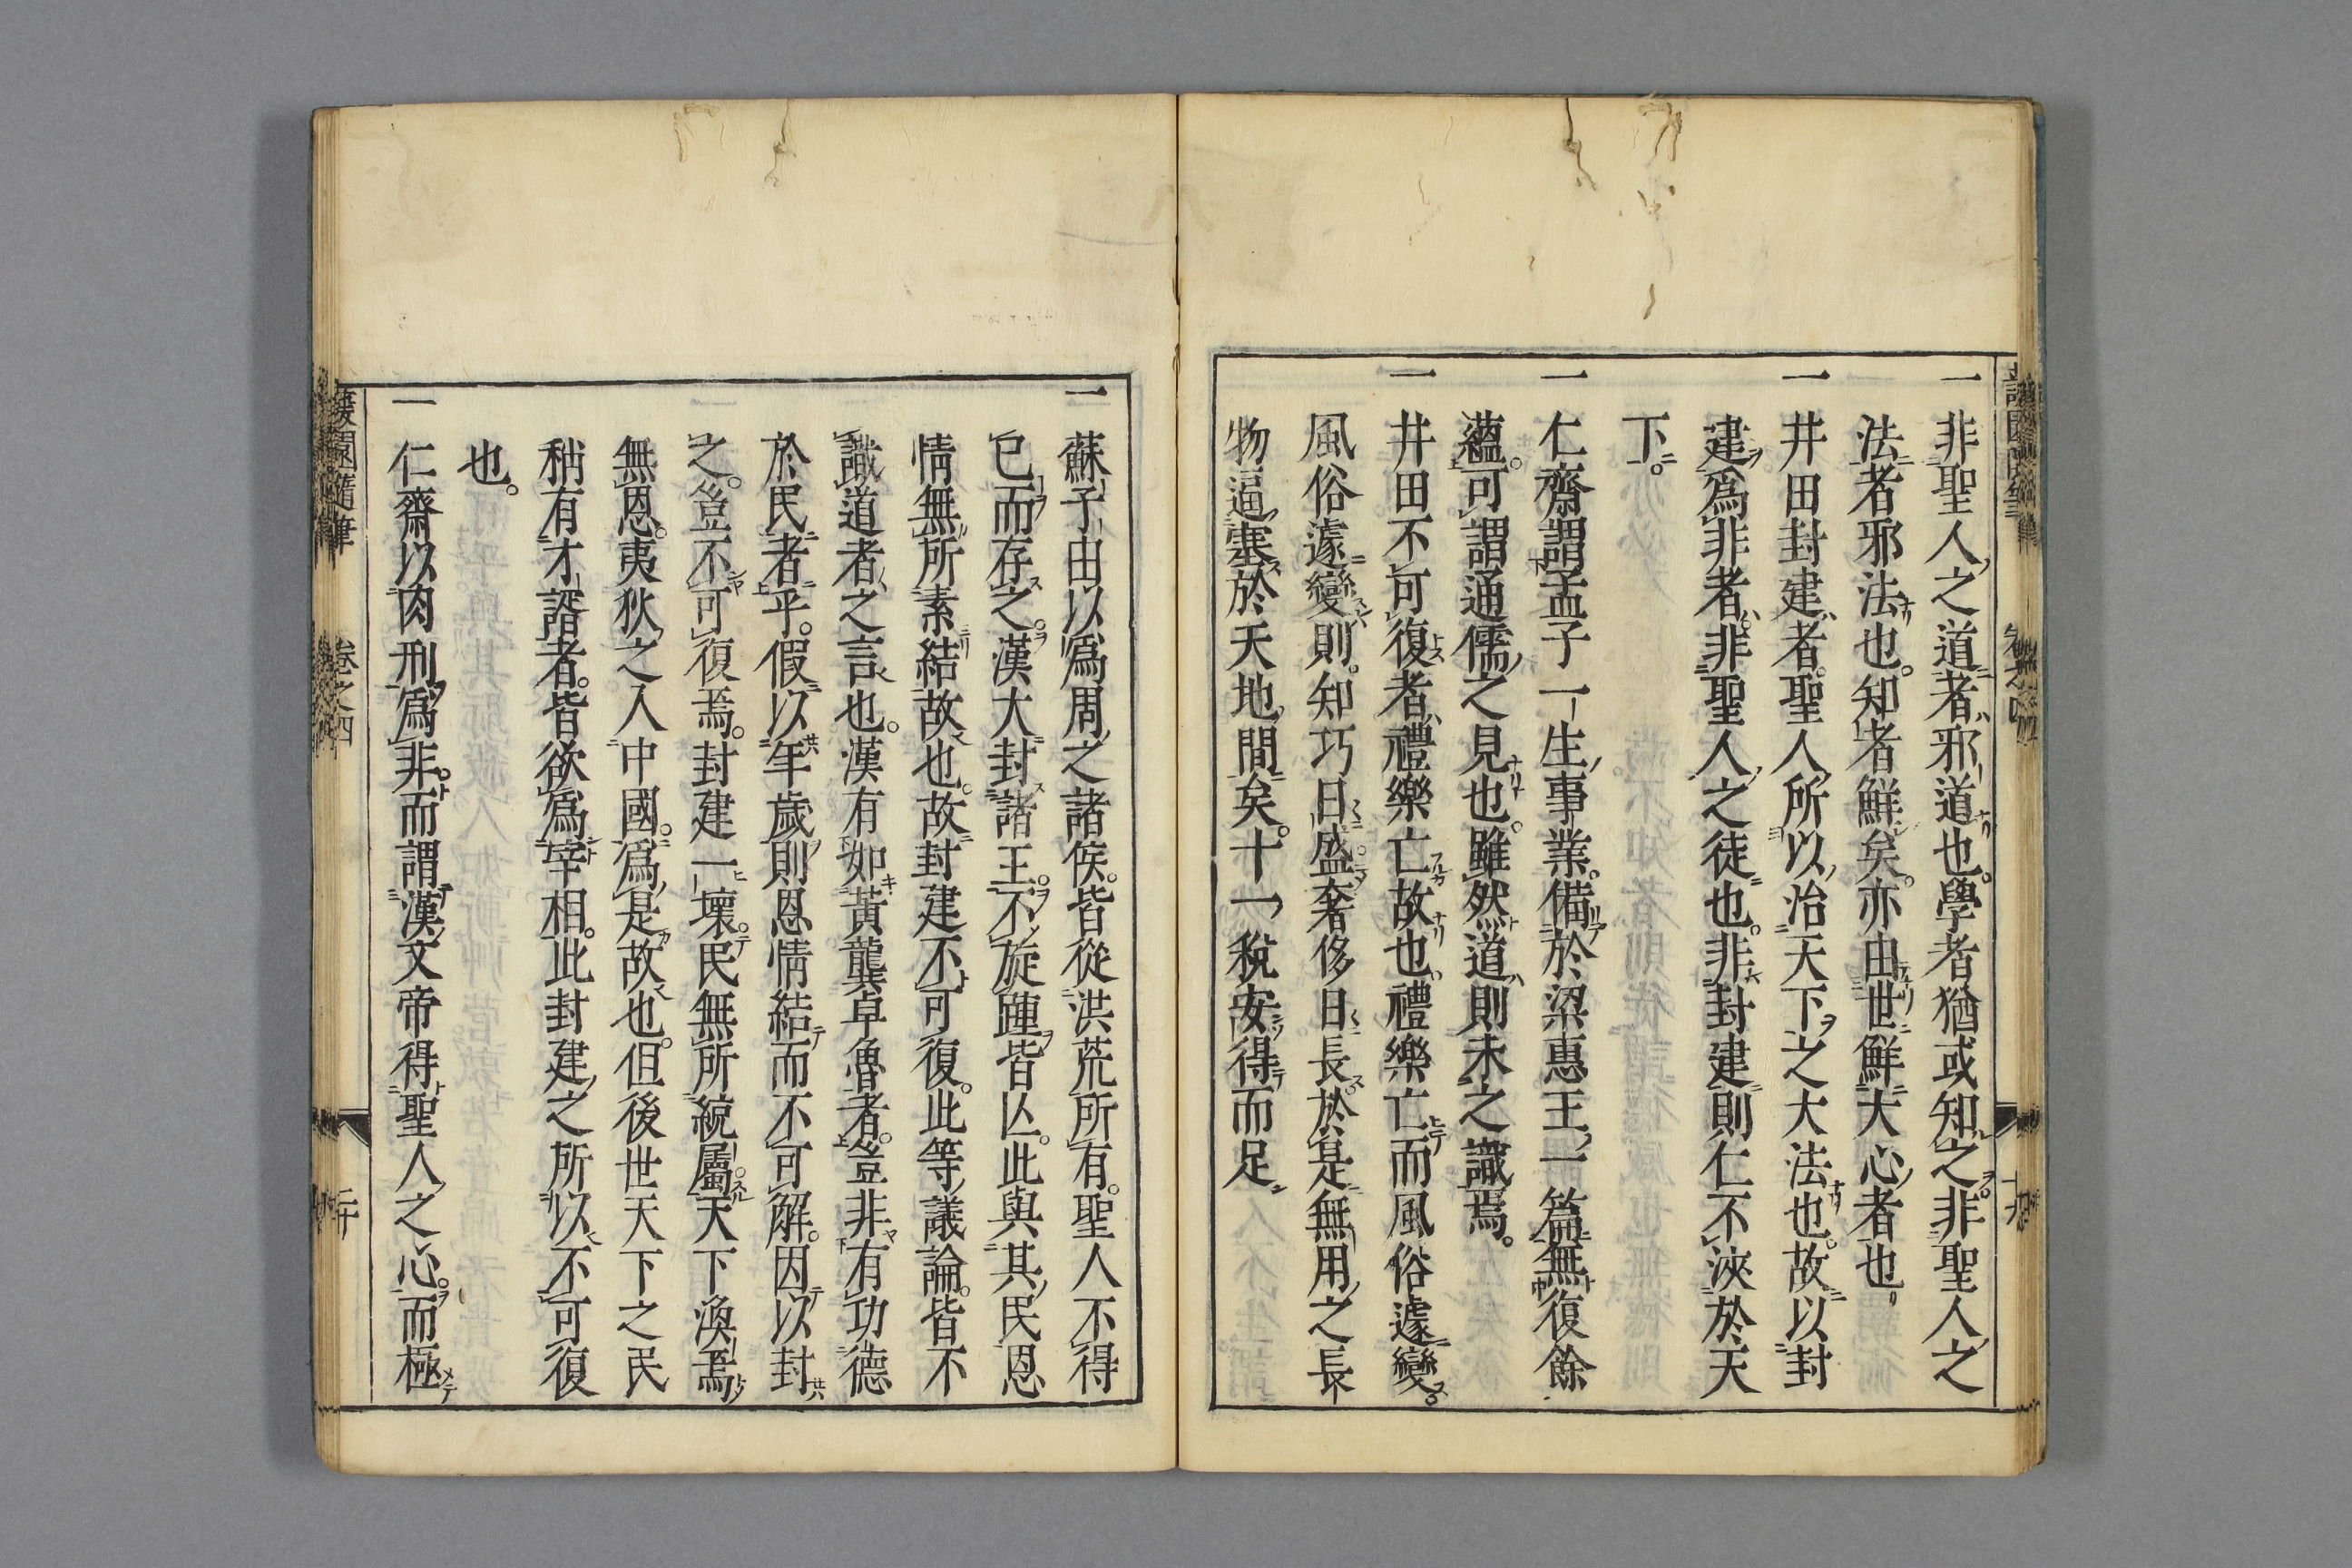 一非聖人之道者邪道也。學者猶或知之。非聖人之
法者邪法也。知者鮮矣。亦由世鮮大心者也。
一井田封建者。聖人所以治天下之大法也。故以封
建爲非者。非聖人之徒也。非封建則仁不浹於天
下。
一仁齋謂孟子一生事業。備於梁惠王一篇無復餘
蘊。可謂通儒之見也。雖然道則未之識焉。
一井田不可復者。禮樂亡故也。禮樂亡而風俗遽變。
風俗遽變則。知巧日盛。奢侈日長。於是無用之長
物逼塞於天地間矣。十一税安得而足
一蘇子由以爲周之諸侯。皆從洪荒所有。聖人不得
已而存之。漢大封諸王。不旋踵皆亾。此與其民恩
情無所素結故也。故封建不可復。此等議論。皆不
識道者之言也。漢有如黃龔卓魯者。豈非有功德
於民者乎。假以年歲則恩情結而不可解。因以封
之。豈不可復焉。封建一壞。民無所統屬。天下渙焉
無恩。夷狄之入中國。爲是故也。但後世天下之民
稍有才諝者。皆欲爲宰相。此封建之所以不可復
也。
一仁齋以肉刑爲非。而謂漢文帝得聖人之心。而極
蘐園隨筆 卷之四 二十